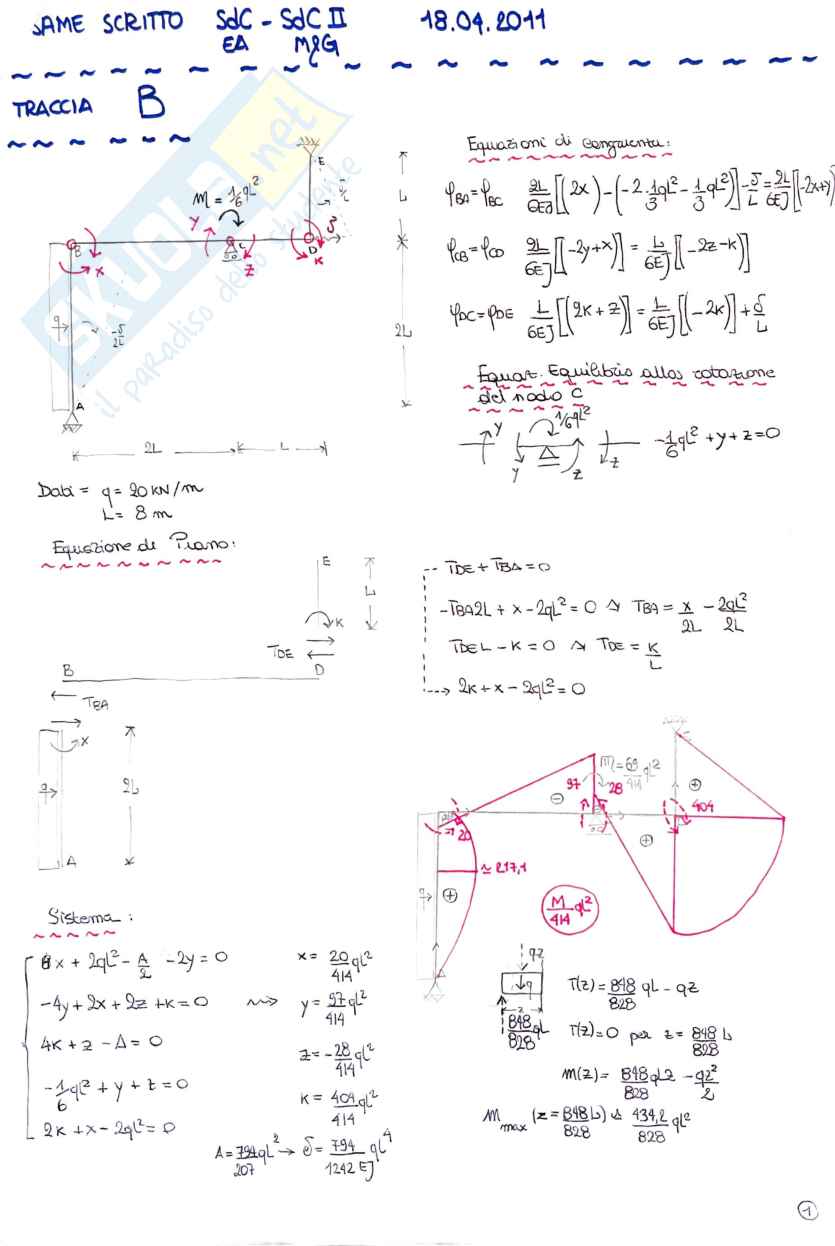 SAME SCRITTO SdC - SdC II 18.04.2011
EA MeG
TRACCIA B
SKUOLA.net
il paradiso dello studente
E
L
m = 1/6 qL²
Y
C
δ
B
X
Z
D
K
q
-δ/2L
2L
A
2L
L
Dati = q = 20 KN/m
L = 8 m
Equazioni di congruenza:
φBA = φBC 2L/6EJ [(2x) - (-2·1/3 qL² - 1/3 qL²)] - δ/L = 2L/6EJ [(-2x+y)]
φCB = φCD 2L/6EJ [(-2y+x)] = L/6EJ [(-2z-k)]
φDC = φDE L/6EJ [(2k+z)] = L/6EJ [(-2k)] + δ/L
Equaz. Equilibrio alla rotazione
del nodo C
Y
Y
1/6 qL²
Z
Z
-1/6 qL² + y + z = 0
Equazione di Piano:
E
L
K
TDE
D
B
TBA
X
q
2L
A
TDE + TBA = 0
-TBA2L + x - 2qL² = 0 → TBA = x/2L - 2qL²/2L
TDE L - K = 0 → TDE = K/L
2K + x - 2qL² = 0
m = 69/414 qL²
97
28
404
20
≃ 217,1
q
M/414 qL²
Sistema:
8x + 2qL² - Δ/2 - 2y = 0
-4y + 2x + 2z + k = 0
4k + z - Δ = 0
-1/6 qL² + y + z = 0
2k + x - 2qL² = 0
x = 20/414 qL²
y = 97/414 qL²
z = -28/414 qL²
k = 404/414 qL²
Δ = 794/207 qL² → δ = 794/1242EJ qL⁴
qz
q
z
848/828 qL
T(z) = 848/828 qL - qz
T(z) = 0 per z = 848/828 L
m(z) = 848/828 qLz - qz²/2
M max (z = 848/828 L) 434,2/828 qL²
1